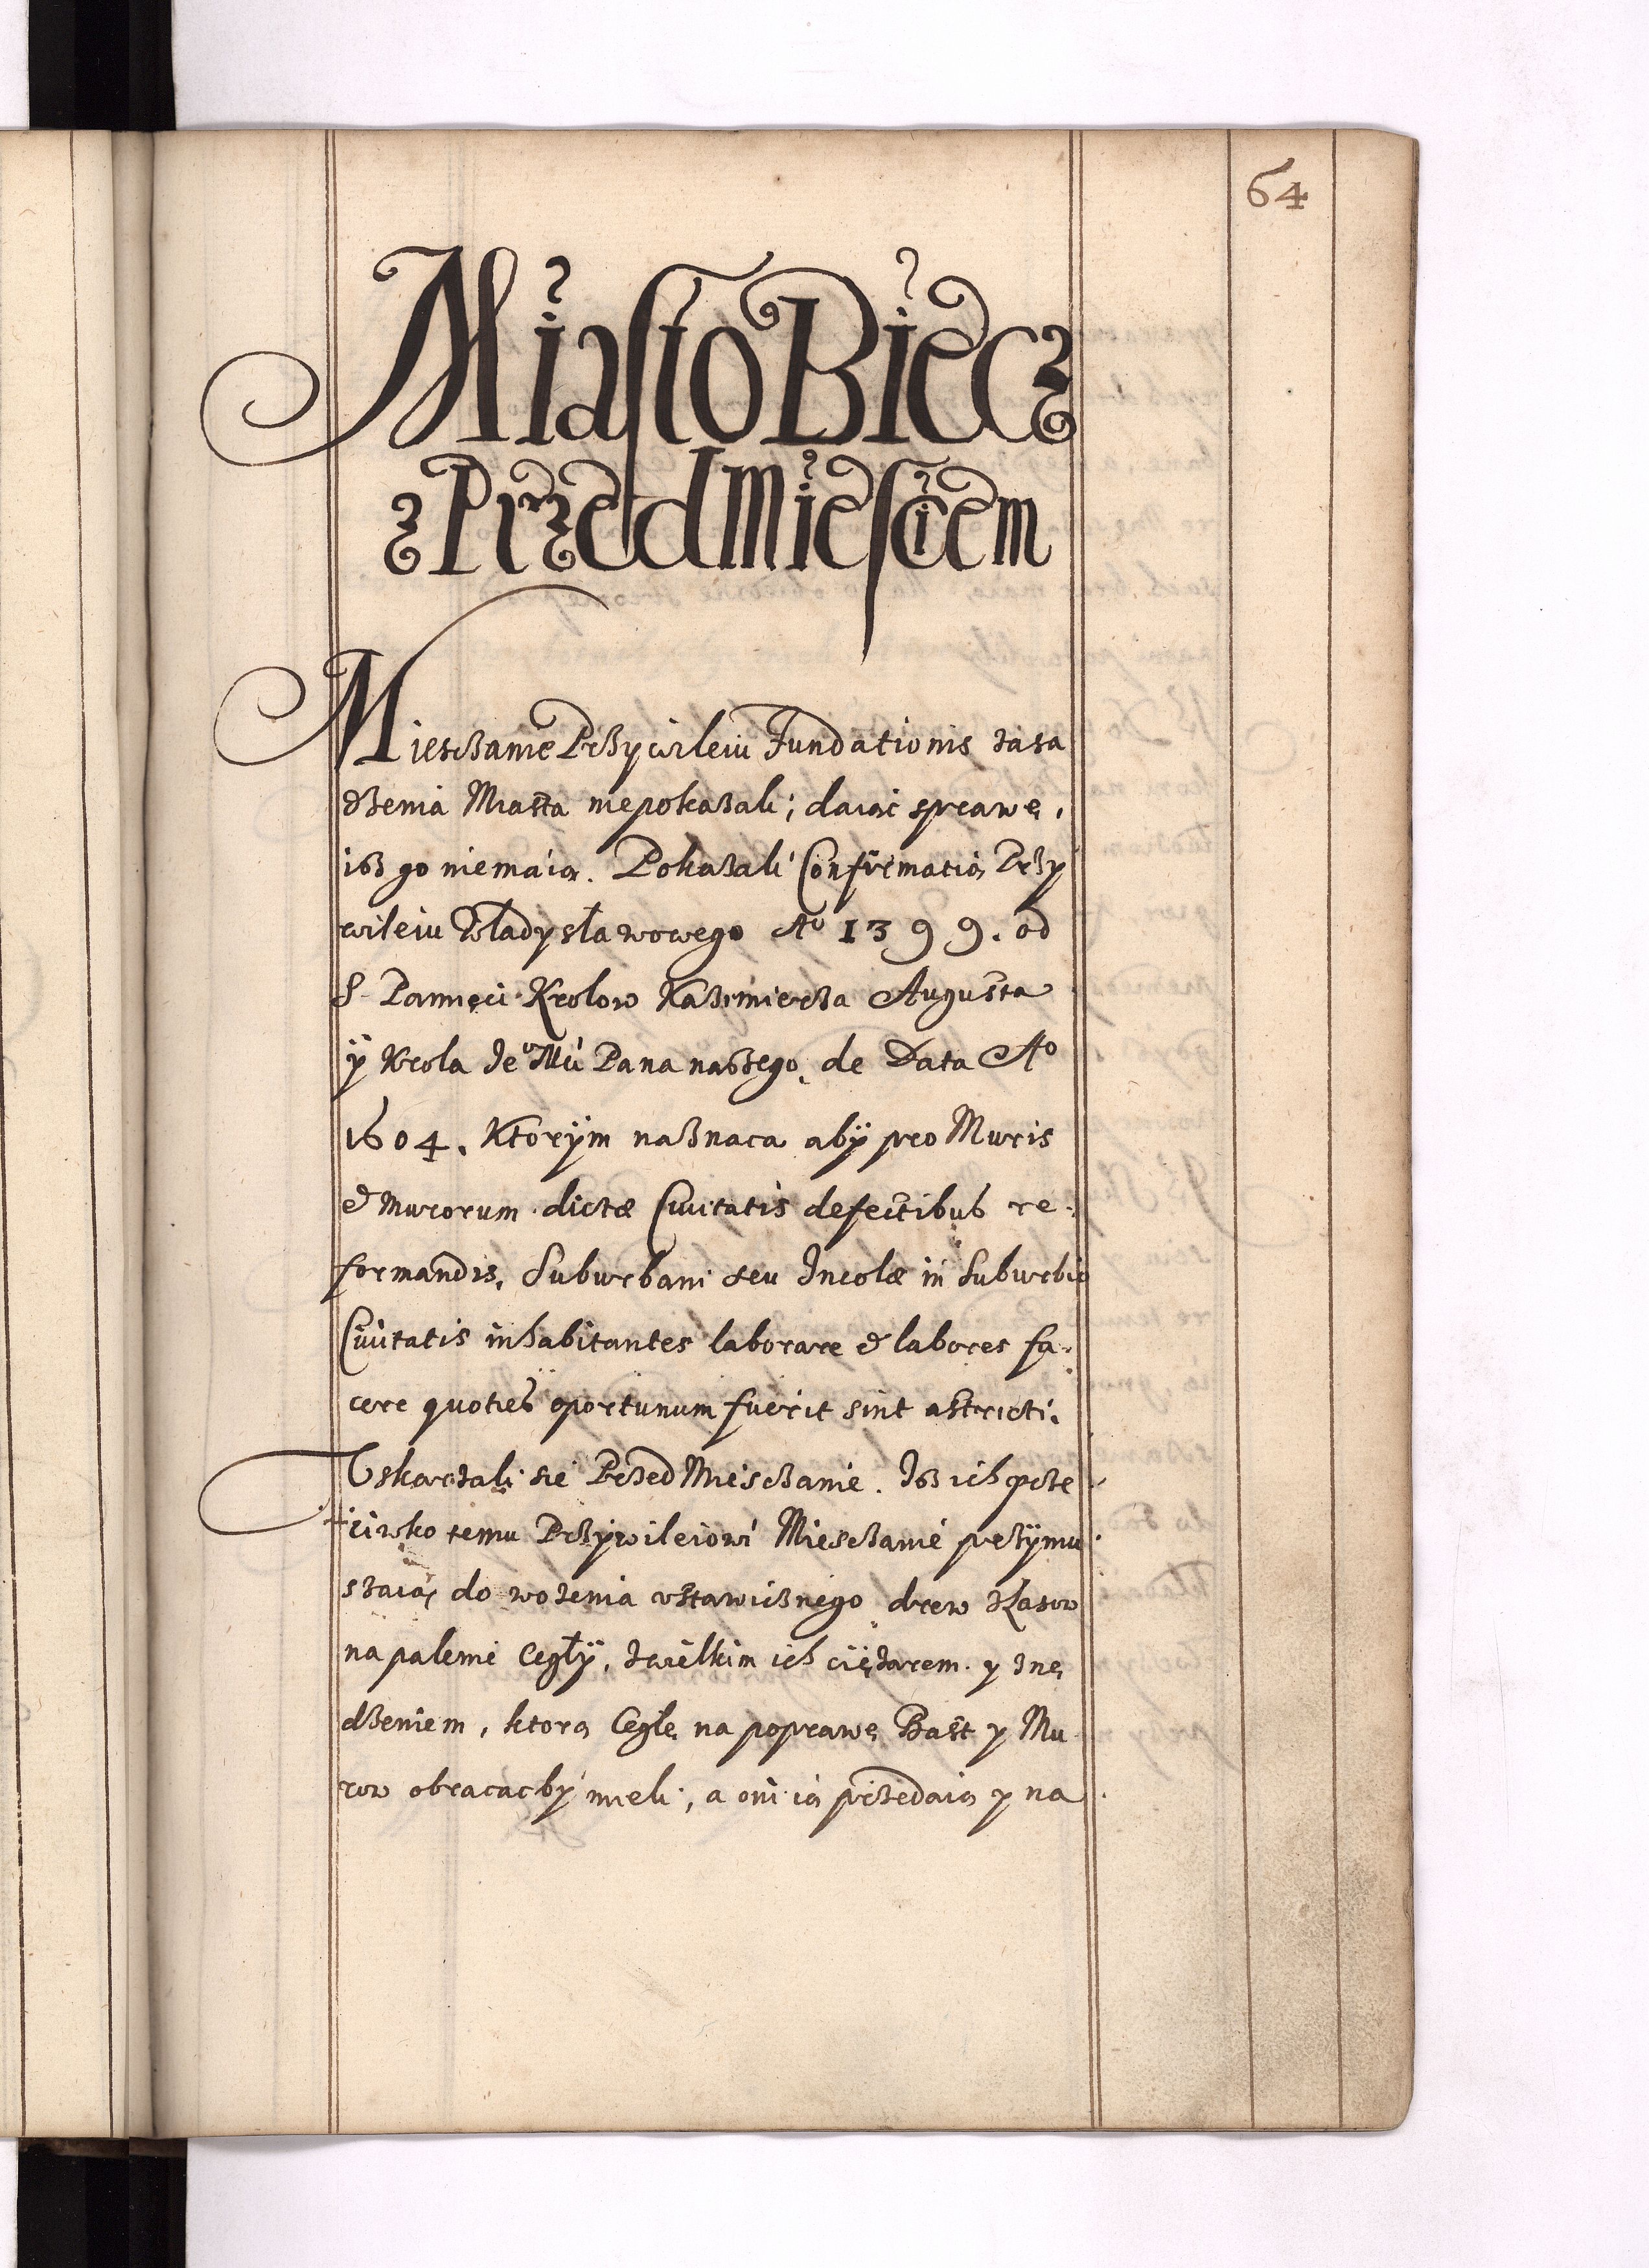 64
Miasto Biecz
z Przedmiesciem
Miesczanie Przywileiu Fundationis zasa
dzenia Miasta niepokazali; daiąc sprawę,
isz go niemaią. Pokazali Confirmatią Przy
wileiu Władysławowego Aº 1399. od
S. Pamięci Krolow Kazimierza Augusta
ÿ Krola Jeº Mci Pana naszego, de Data Aº
1604. Ktorÿm naznaca abÿ pro Muris
et Murorum dictæ Ciuitatis defectibus re-
formandis, Suburbani seu Incolæ in Suburbio
Ciuitatis inhabitantes laborare et labores fa-
cere quoties oportunum fuerit sint astricti.
Uskarzali sie Przed Miesczanie. Isz ich prze
ciwko temu Przÿwileiowi Miesczanie przÿmu
szaią do wozenia ustawicznego drew z Lasow
na palenie Cegłÿ, z wielkim ich ciężarem y znę
dzeniem, ktorą Cegłę na poprawę Baszt y Mu
row obracac by mieli, a oni ią przedaią y na